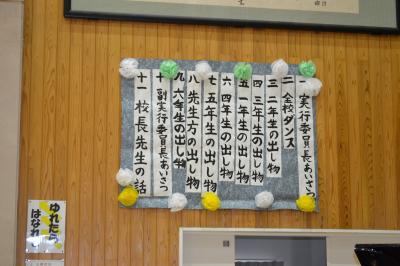 一 実行委員長あいさつ
二 全校ダンス
三 二年生の出し物
四 三年生の出し物
五 一年生の出し物
六 四年生の出し物
七 五年生の出し物
八 先生方の出し物
九 六年生の出し物
十 副実行委員長あいさつ
十一 校長先生の話
ゆれたら
はなれ